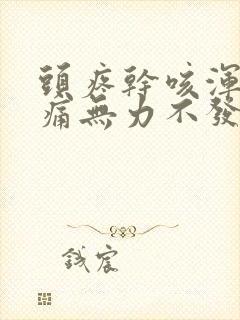 頭疼幹咳渾
痛無力不發
宸